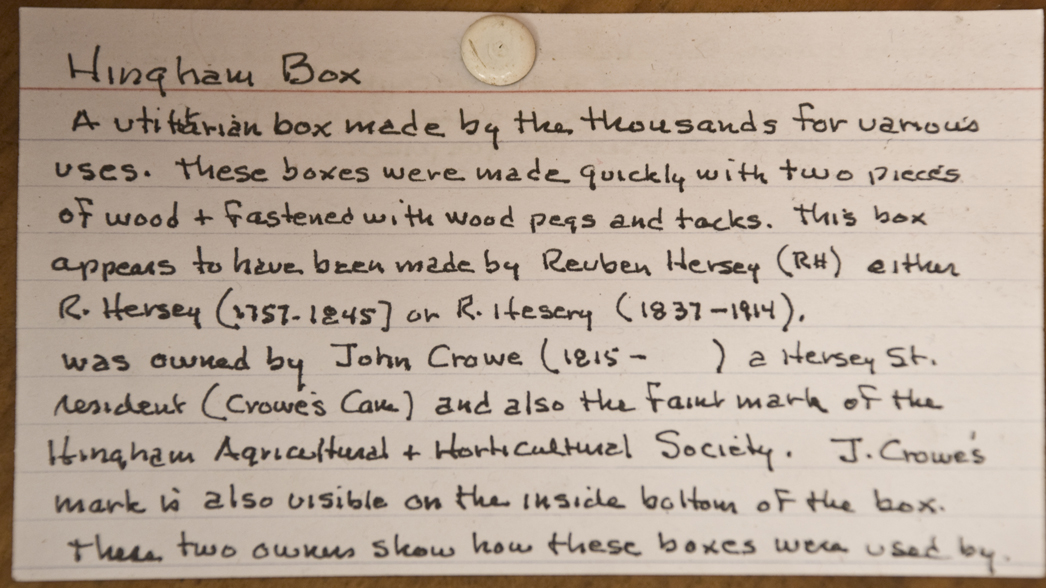 Hingham Box
A utilitarian box made by the thousands for various
uses. These boxes were made quickly with two pieces
of wood + fastened with wood pegs and tacks. This box
appears to have been made by Reuben Hersey (RH) either
R. Hersey (1757-1845] or R. Hesery (1837-1914).
was owned by John Crowe (1815- ) a Hersey St.
resident (Crowe's Lane) and also the faint mark of the
Hingham Agricultural + Horticultural Society. J. Crowe's
mark is also visible on the inside bottom of the box.
These two owners show how these boxes were used by.